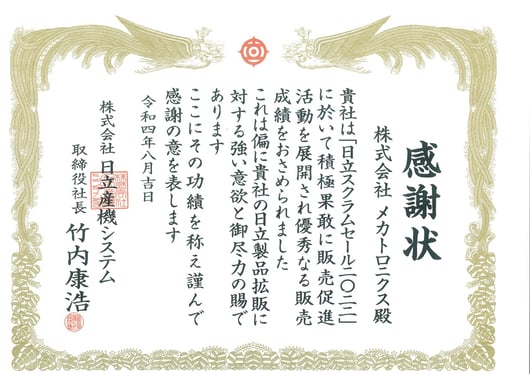 感謝状
株式会社 メカトロニクス殿
貴社は「日立スクラムセール二〇二二」
に於いて積極果敢に販売促進
活動を展開され優秀なる販売
成績をおさめられました
これは偏に貴社の日立製品拡販に
対する強い意欲と御尽力の賜で
あります
ここにその功績を称え謹んで
感謝の意を表します
令和四年八月吉日
株式会社 日立産機システム
取締役社長 竹内康浩